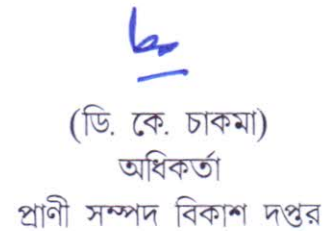 (ডি. কে. চাকমা)
অধিকর্তা
প্রাণী সম্পদ বিকাশ দপ্তর